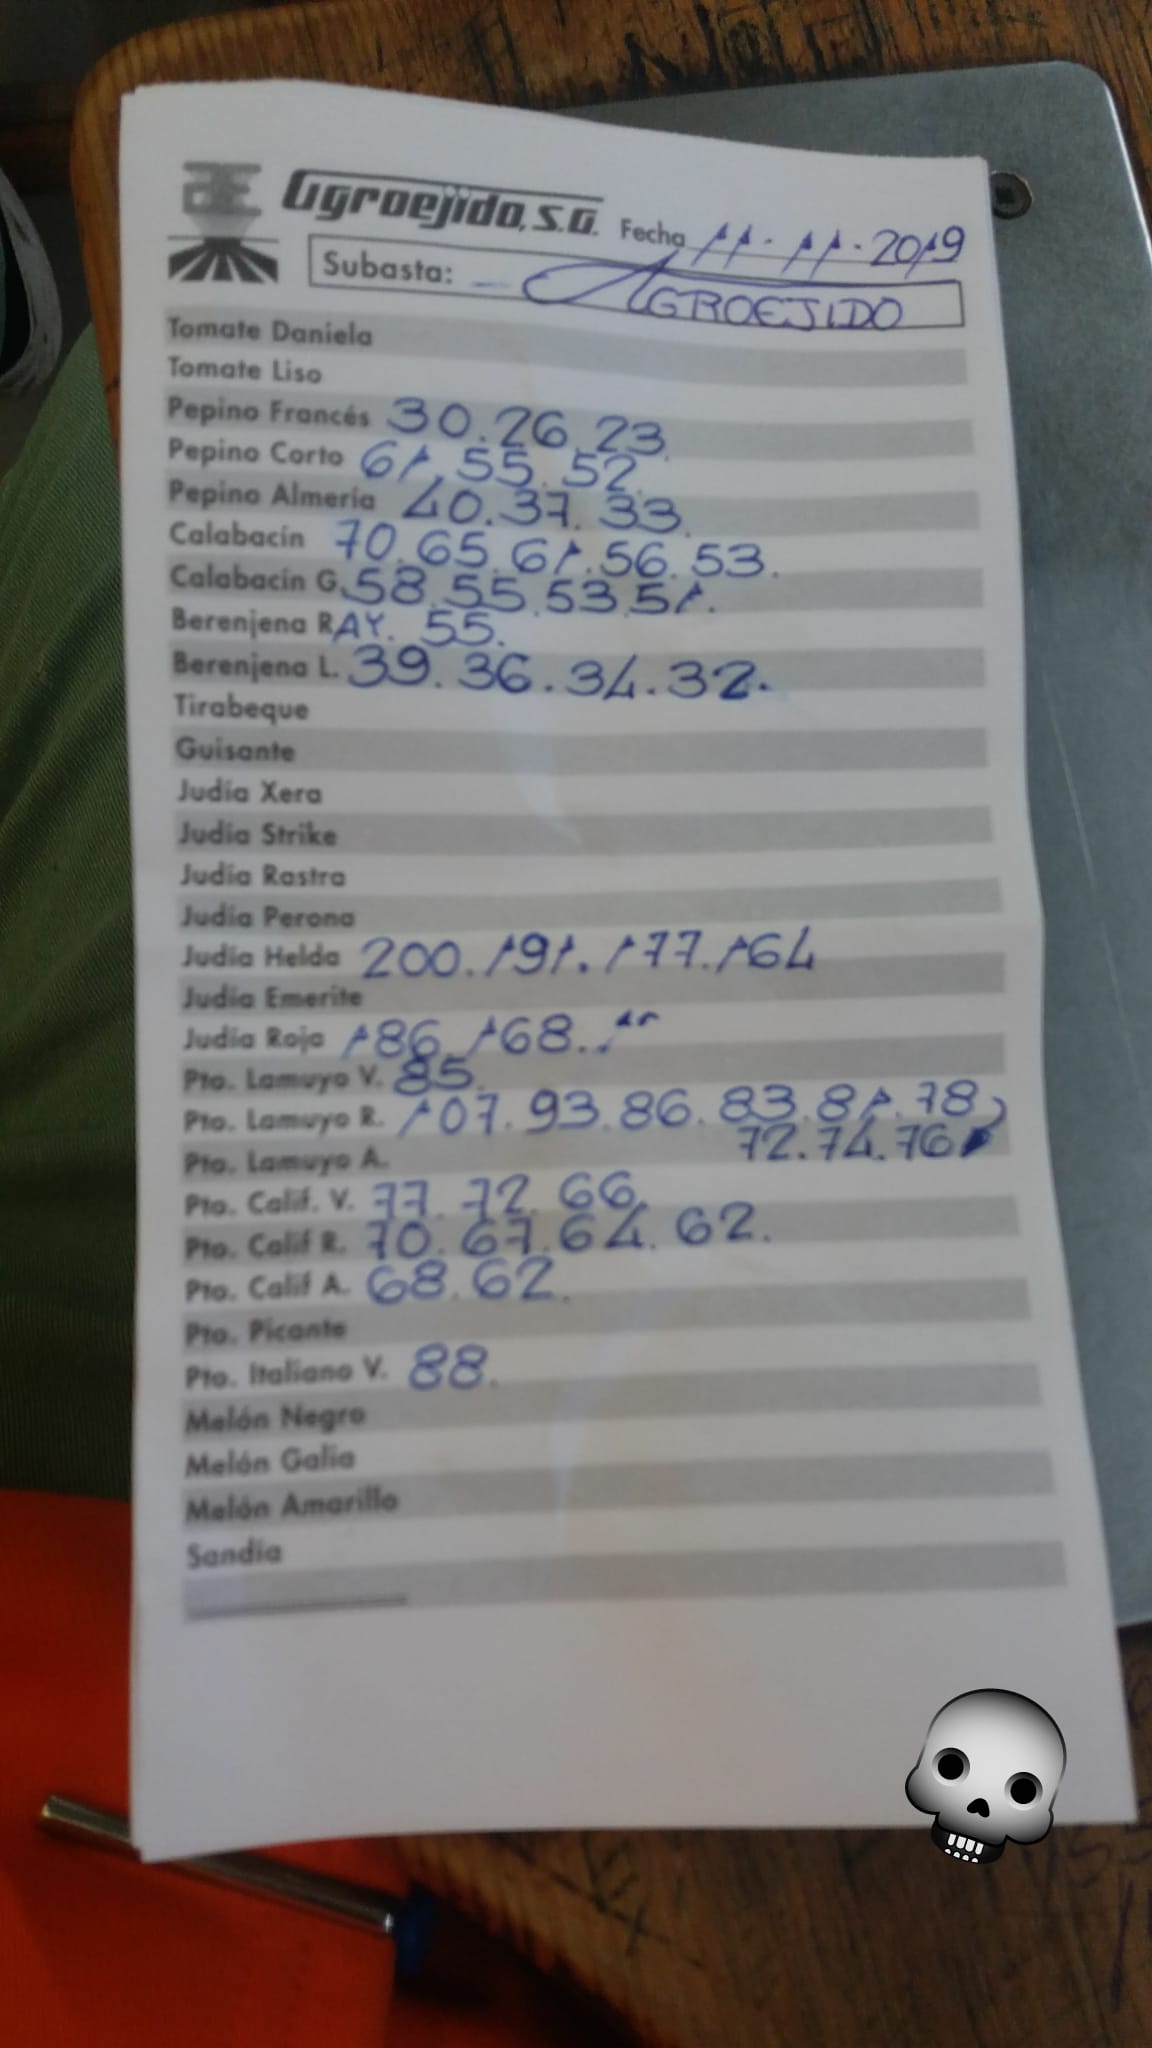 AE Agroejido, S.A. Fecha 11-11-2019
Subasta: AGROEJIDO
Tomate Daniela
Tomate Liso
Pepino Francés 30.26.23.
Pepino Corto 61.55.52.
Pepino Almería 40.37.33.
Calabacín 70.65.61.56.53.
Calabacín G. 58.55.53.51.
Berenjena RAY. 55.
Berenjena L. 39.36.34.32.
Tirabeque
Guisante
Judía Xera
Judía Strike
Judía Rastra
Judía Perona
Judía Helda 200.191.177.164
Judía Emerite
Judía Roja 186.168.
Pto. Lamuyo V. 85.
Pto. Lamuyo R. 107.93.86.83.81.78
72.74.76
Pto. Lamuyo A.
Pto. Calif. V. 77.72.66.
Pto. Calif R. 70.67.64.62.
Pto. Calif A. 68.62.
Pto. Picante
Pto. Italiano V. 88.
Melón Negro
Melón Galia
Melón Amarillo
Sandía